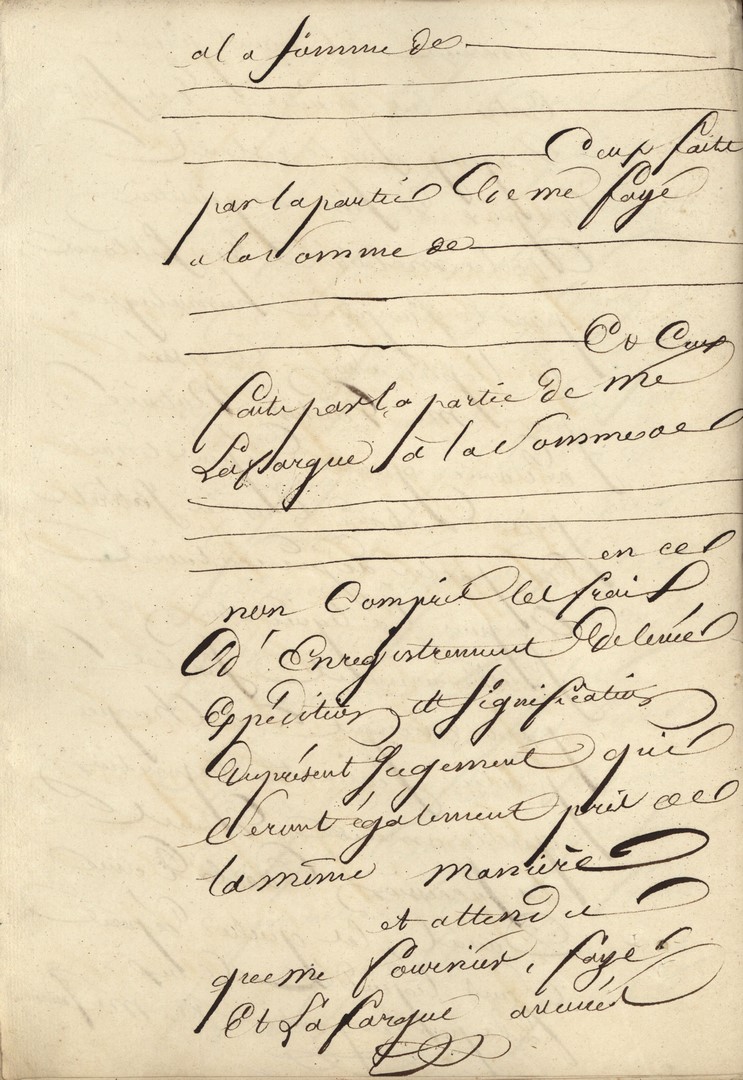 à la somme de
Ceux faits
par la partie de me faye
a la Somme de
Et Ceux
faits par la partie de me
Lafargue à la Somme de
en ce
non Compris les frais
D'Enregistrement de levée
Expédition et Signification
du présent Jugement qui
Seront également pris de
la même manière
et attendu
que me fournier, faye
Et Lafargue avoués